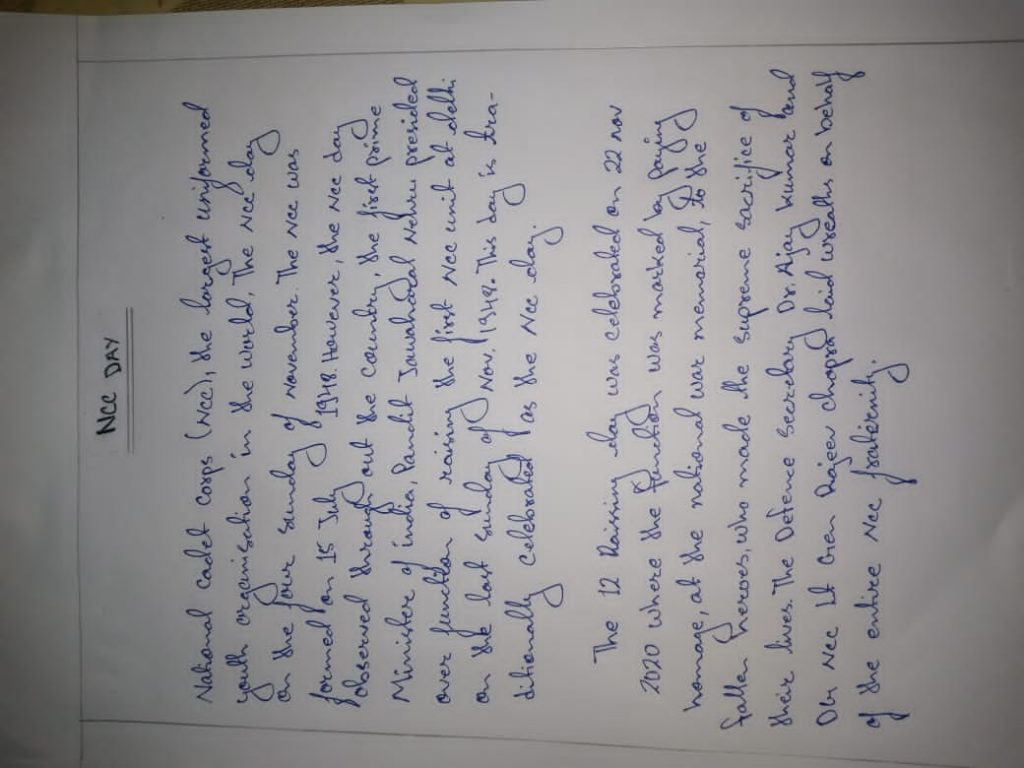 NCC DAY
National Cadet Corps (NCC), the largest uniformed
youth organisation in the world, The NCC day
on the four Sunday of November. The NCC was
formed on 15 July 1948. However, the NCC day
observed through out the country, the first prime
Minister of india, Pandit Jawaharlal Nehru presided
over function of raising the first NCC unit at delhi
on the last Sunday of Nov, 1948. This day is tra-
ditionally celebrated as the NCC day.
The 12 Raising day was celebrated on 22 nov
2020 where the function was marked by paying
homage, at the national war memorial, to the
fallen heroes, who made the supreme sacrifice of
their lives. The Defense Secretary Dr. Ajay Kumar and
DG NCC lt Gen Rajeev chopra laid wreaths on behalf
of the entire NCC fraternity.